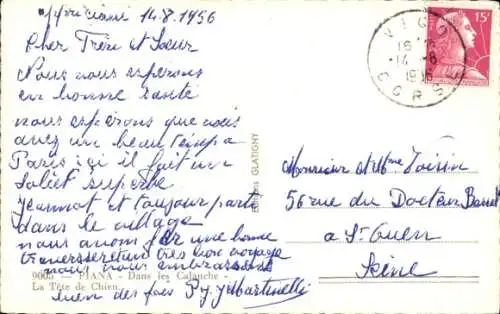 14.8.1956
Cher Frère et Sœur
Nous vous esperons
en bonne santé
nous esperons que vous
avez un beau temps a
Paris içi il fait un
Soleil superbe
Jeannot et toujour parti
dans le village
nous avons fer une bonne
traverser très bon voyage
nous vous embrassons
bien des fois P. J. Martinelli
9005 - PIANA - Dans les Calanche -
La Tête de Chien.
Editions GLATIGNY
VICO
16 H
14 - 8
1956
CORSE
15F
Monsieur et Mme Voisin
56 rue du Docteur Bauer
a St Ouen
Seine